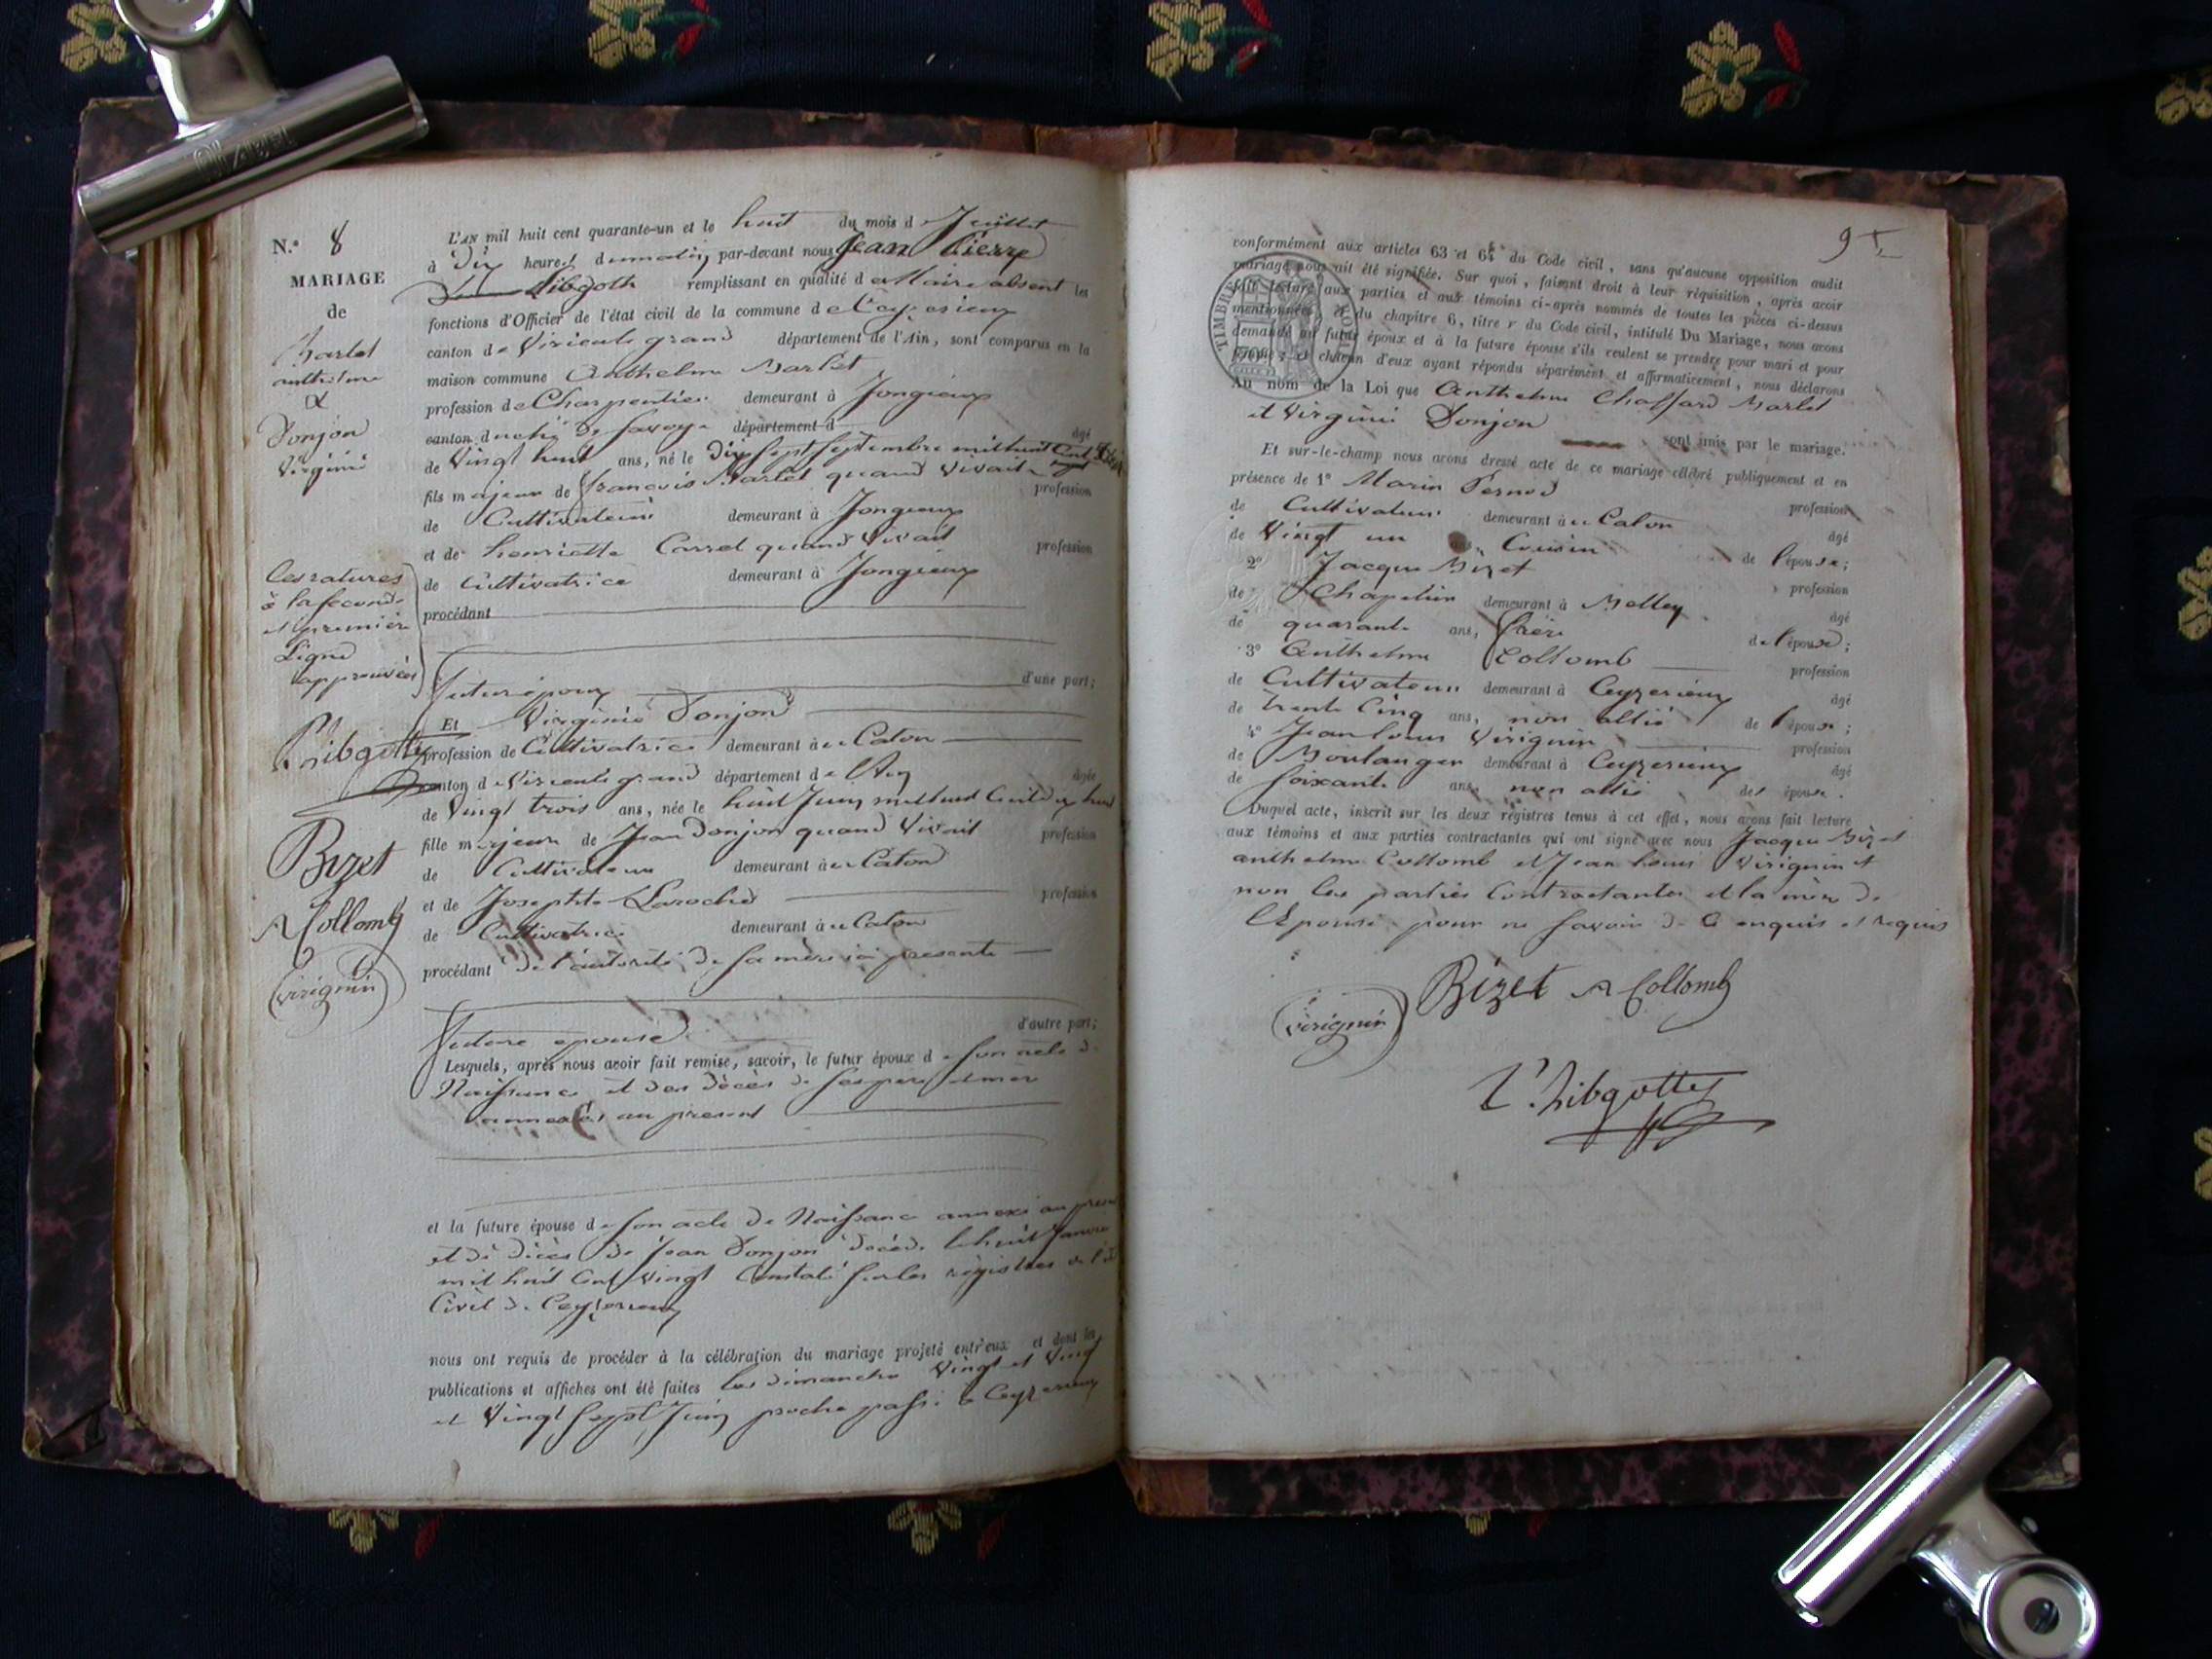 N.° 8
MARIAGE
de
Marlet
anthelme
&
Donjon
Virginie
Les ratures
à la seconde
et première
Ligne
approuvées
Bizet
A Collomb
Virignin
L'AN mil huit cent quarante-un et le huit du mois de Juillet
à Dix heures du matin par-devant nous Jean Pierre
remplissant en qualité de Maire absent les
fonctions d'Officier de l'état civil de la commune de Ceyzerieux
canton de Virieu le grand département de l'Ain, sont comparus en la
maison commune Anthelme Marlet
profession de Charpentier demeurant à Jongieux
canton duché de Savoye département d
âgé
de Vingt huit ans, né le Dix sept septembre mil huit cent
fils majeur de françois Marlet quand vivait
profession
de Cultivateur demeurant à Jongieux
et de henriette Carrel quand Vivait profession
de Cultivatrice demeurant à Jongieux
procédant
futur époux d'une part;
Et Virginie Donjon
profession de Cultivatrice demeurant à
canton de Virieu le grand département de l'Ain âgée
de Vingt trois ans, née le huit Juin mil huit Cent dix huit
fille majeure de Jean Donjon quand Vivait profession
de Cultivateur demeurant à
et de Josephte Laroche profession
de Cultivatrice demeurant à
procédant de l'autorité de sa mère ici presente
future epouse d'autre part;
Lesquels, après nous avoir fait remise, savoir, le futur époux de son acte de
Naissance et des décès de ses père et mère
annexés au present
et la future épouse de son acte de Naissance annexé au present
et de décès de Jean Donjon décédé le huit Janvier
mil huit Cent Vingt Constaté sur les régistres de l'état
Civil de Ceyzerieux
nous ont requis de procéder à la célébration du mariage projeté entr'eux et dont les
publications et affiches ont été faites les dimanche Vingt et Vingt
et Vingt sept Juin proche passé à Ceyzerieux
9
conformément aux articles 63 et 64 du Code civil, sans qu'aucune opposition audit
mariage nous ait été signifiée. Sur quoi, faisant droit à leur réquisition, après avoir
fait lecture aux parties et aux témoins ci-après nommés de toutes les pièces ci-dessus
mentionnées et du chapitre 6, titre v du Code civil, intitulé Du Mariage, nous avons
demandé au futur époux et à la future épouse s'ils veulent se prendre pour mari et pour
femme; et chacun d'eux ayant répondu séparément et affirmativement, nous déclarons
TIMBRE ROYAL
Au nom de la Loi que Anthelme Chaffard Marlet
et Virginie Donjon
sont unis par le mariage.
Et sur-le-champ nous avons dressé acte de ce mariage célébré publiquement et en
présence de 1° Marin Pernod
profession
de Cultivateur demeurant à
âgé
de Vingt un ans, Cousin de l'épouse;
2° Jacques Bizet
profession
de Chapelier demeurant à
âgé
de quarante ans, frère de l'épouse;
3° Anthelme Collomb
profession
de Cultivateur demeurant à Ceyzerieux
âgé
de trente Cinq ans, non allié de l'épouse;
4° Jean Louis Virignin
profession
de Boulanger demeurant à Ceyzerieux
âgé
de soixante ans, non allié des époux.
Duquel acte, inscrit sur les deux régistres tenus à cet effet, nous avons fait lecture
aux témoins et aux parties contractantes qui ont signé avec nous Jacques Bizet
anthelme Collomb et Jean Louis Virignin et
non les parties Contractantes et la mère de
L'Epouse pour ne savoir de ce enquis et requis
Bizet A Collomb
Virignin